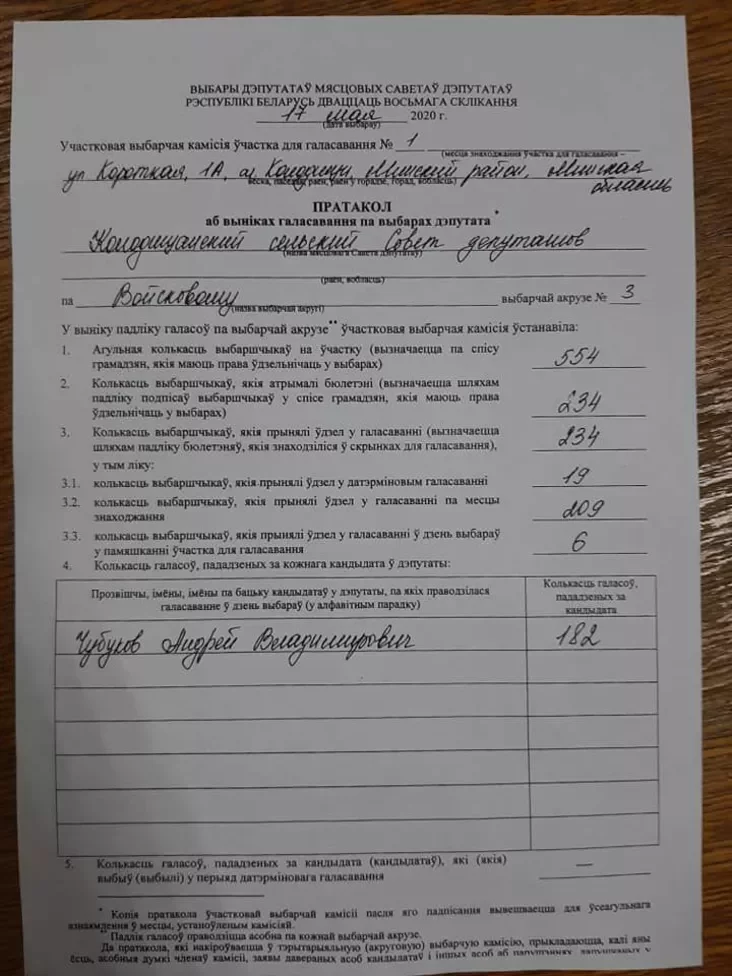 ВЫБАРЫ ДЭПУТАТАЎ МЯСЦОВЫХ САВЕТАЎ ДЭПУТАТАЎ
РЭСПУБЛІКІ БЕЛАРУСЬ ДВАЦЦАЦЬ ВОСЬМАГА СКЛІКАННЯ
17 мая 2020 г.
(дата выбараў)
Участковая выбарчая камісія ўчастка для галасавання № 1
(месца знаходжання ўчастка для галасавання –
ул Короткая, 1А, Минский район, Минская
область
вёска, пасёлак, раён, раён у горадзе, горад, вобласць)
ПРАТАКОЛ
аб выніках галасавання па выбарах дэпутата*
Колодищанский сельский Совет депутатов
(назва мясцовага Савета дэпутатаў)
(раён, вобласць)
па Войсковому выбарчай акрузе № 3
(назва выбарчай акругі)
У выніку падліку галасоў па выбарчай акрузе** ўчастковая выбарчая камісія ўстанавіла:
1. Агульная колькасць выбаршчыкаў на ўчастку (вызначаецца па спісу
грамадзян, якія маюць права ўдзельнічаць у выбарах) 554
2. Колькасць выбаршчыкаў, якія атрымалі бюлетэні (вызначаецца шляхам
падліку подпісаў выбаршчыкаў у спісе грамадзян, якія маюць права
ўдзельнічаць у выбарах) 234
3. Колькасць выбаршчыкаў, якія прынялі ўдзел у галасаванні (вызначаецца
шляхам падліку бюлетэняў, якія знаходзіліся ў скрынках для галасавання), 234
у тым ліку:
3.1. колькасць выбаршчыкаў, якія прынялі ўдзел у датэрміновым галасаванні 19
3.2. колькасць выбаршчыкаў, якія прынялі ўдзел у галасаванні па месцы
знаходжання 209
3.3. колькасць выбаршчыкаў, якія прынялі ўдзел у галасаванні ў дзень выбараў
у памяшканні ўчастка для галасавання 6
4. Колькасць галасоў, пададзеных за кожнага кандыдата ў дэпутаты:
Прозвішчы, імёны, імёны па бацьку кандыдатаў у дэпутаты, па якіх праводзілася
галасаванне ў дзень выбараў (у алфавітным парадку)
Колькасць галасоў,
пададзеных за
кандыдата
Чубуков Андрей Владимирович 182
5. Колькасць галасоў, пададзеных за кандыдата (кандыдатаў), які (якія) —
выбыў (выбылі) у перыяд датэрміновага галасавання
* Копія пратакола ўчастковай выбарчай камісіі пасля яго падпісання вывешваецца для ўсеагульнага
азнаямлення ў месцы, устаноўленым камісіяй.
** Падлік галасоў праводзіцца асобна па кожнай выбарчай акрузе.
Да пратакола, які накіроўваецца ў тэрытарыяльную (акруговую) выбарчую камісію, прыкладаюцца, калі яны
ёсць, асобныя думкі членаў камісіі, заявы давераных асоб кандыдатаў і іншых асоб аб парушэннях, дапушчаных у